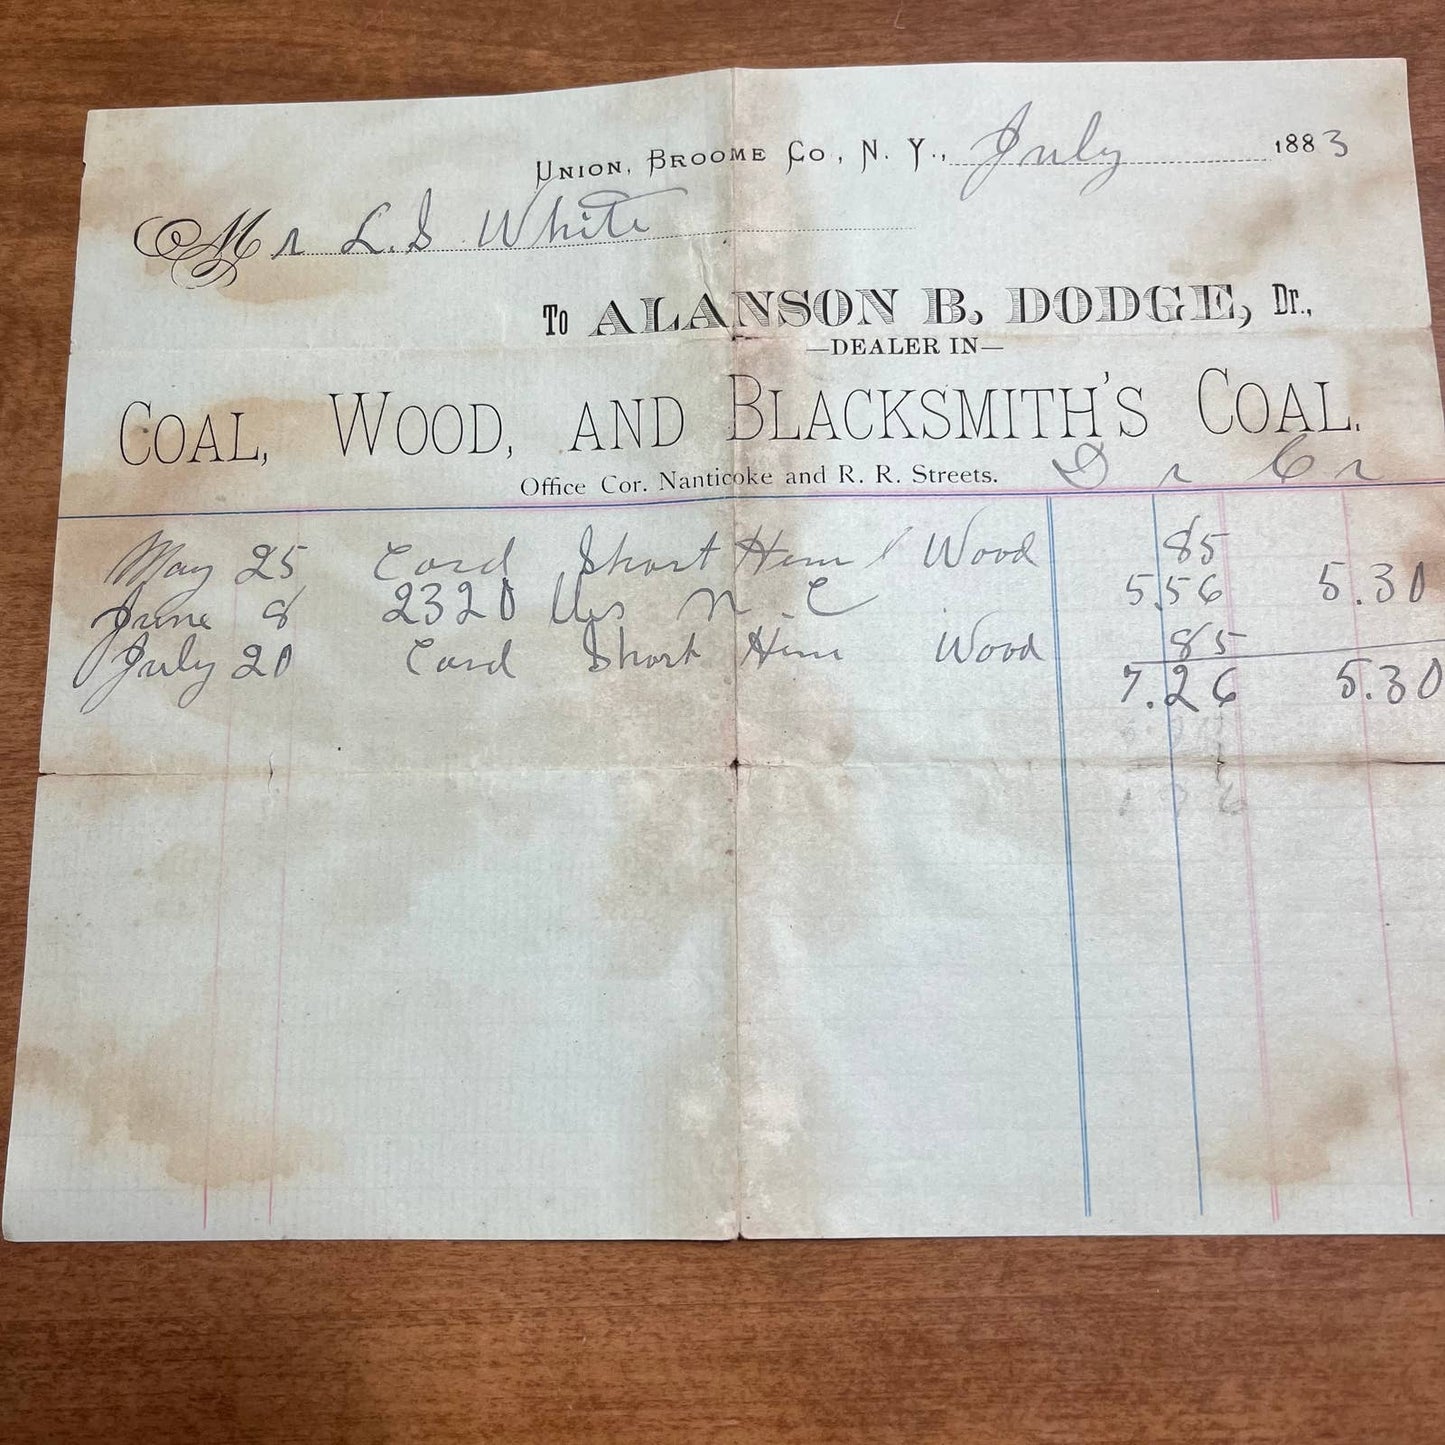 Union, Broome Co., N. Y., July 1883
Mr L. S. White
To ALANSON B. DODGE, Dr.,
—DEALER IN—
COAL, WOOD, AND BLACKSMITH'S COAL.
Office Cor. Nanticoke and R. R. Streets. Dr Cr
May 25 Cord Short Hem Wood 85
June 8 2320 lbs N. C 5.56 5.30
July 20 Cord Short Hem Wood 85
7.26 5.30